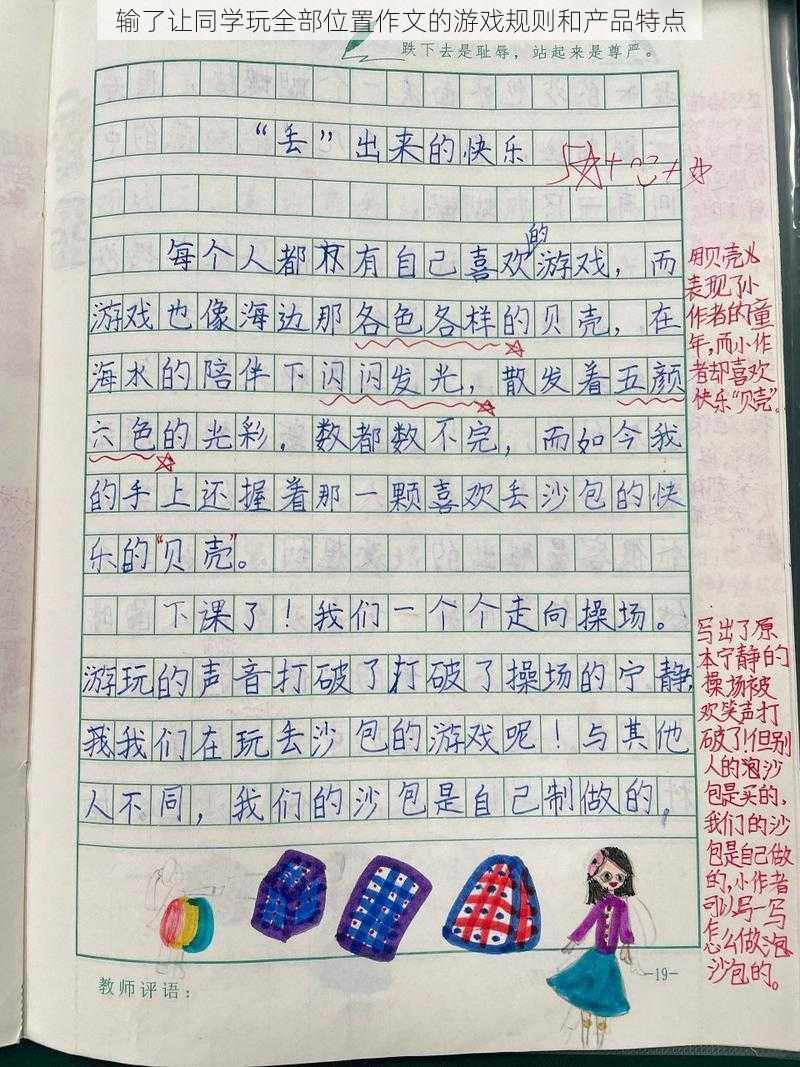 输了让同学玩全部位置作文的游戏规则和产品特点
跌下去是耻辱，站起来是尊严。
“丢”出来的快乐
每个人都有自己喜欢的游戏，而
游戏也像海边那各色各样的贝壳，在
海水的陪伴下闪闪发光，散发着五颜
六色的光彩，数都数不完，而如今我
的手上还握着那一颗喜欢丢沙包的快
乐的“贝壳”。
下课了！我们一个个走向操场。
游玩的声音打破了打破了操场的宁静，
我我们在玩丢沙包的游戏呢！与其他
人不同，我们的沙包是自己制做的，
用贝壳
表现了小
作者的童
年，而小作
者却喜欢
快乐“贝壳”。
写出了原
本宁静的
操场被
欢笑声打
破了！但别
人的沙
包是买的，
我们的沙
包是自己做
的，小作者
可以写一写
怎么做
沙包的。
-19-
教师评语：